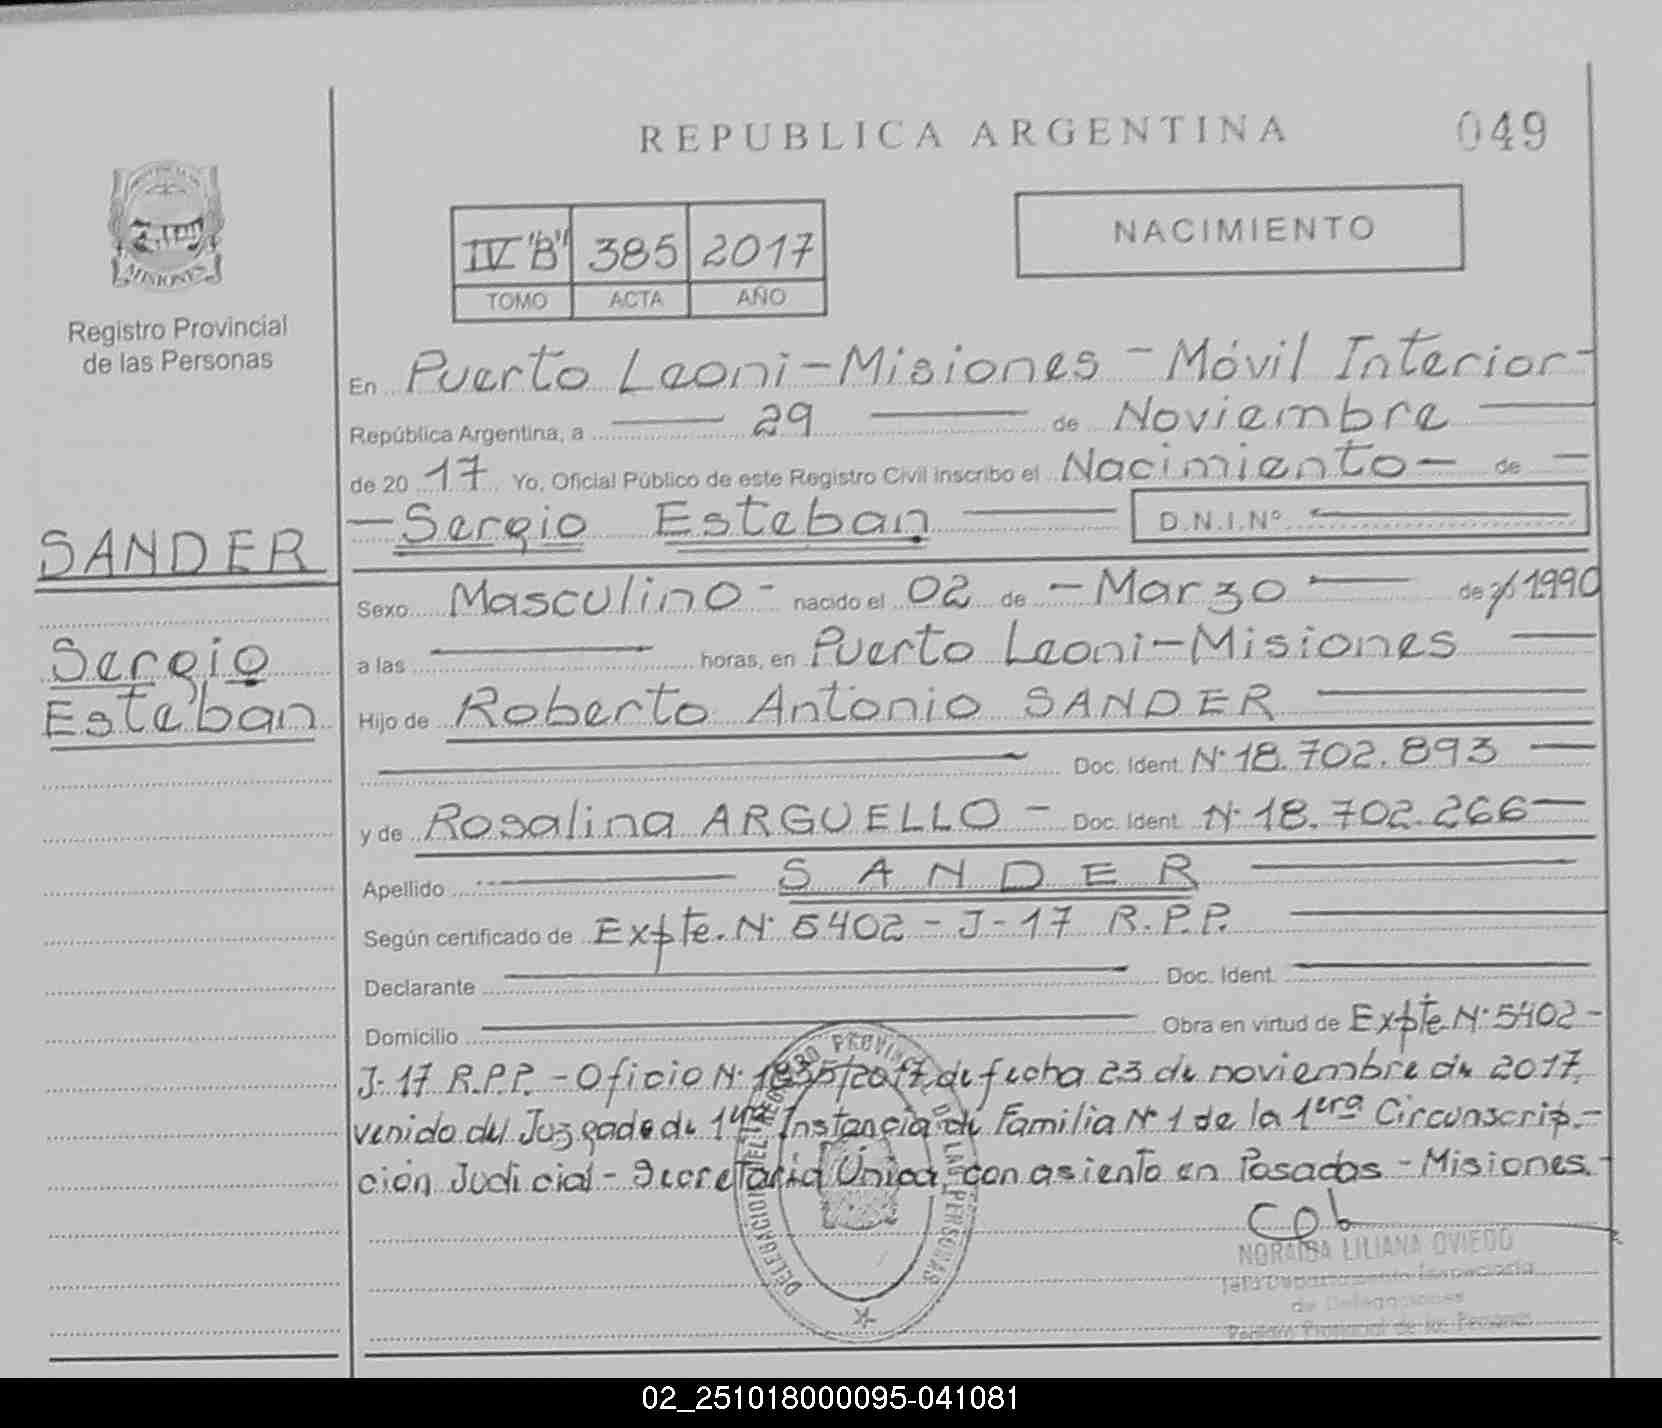 REPUBLICA ARGENTINA
049
MISIONES
Registro Provincial
de las Personas
IV "B" 385 2017
TOMO ACTA AÑO
NACIMIENTO
SANDER
Sergio
Esteban
En Puerto Leoni - Misiones - Móvil Interior -
República Argentina, a 29 de Noviembre
de 20 17 Yo, Oficial Público de este Registro Civil inscribo el Nacimiento - de -
- Sergio Esteban D.N.I.Nº
Sexo Masculino - nacido el 02 de - Marzo de 1990
a las horas, en Puerto Leoni - Misiones
Hijo de Roberto Antonio SANDER
Doc. Ident. Nº 18.702.893
y de Rosalina ARGUELLO - Doc. Ident. Nº 18.702.266
Apellido SANDER
Según certificado de Expte. Nº 5402 - J - 17 R.P.P.
Declarante Doc. Ident.
Domicilio Obra en virtud de Expte. Nº 5402 -
J-17 R.P.P. - Oficio Nº 1835/2017 de fecha 23 de noviembre de 2017,
venido del Juzgado de 1era Instancia de Familia Nº 1 de la 1era Circunscrip-
ción Judicial - Secretaría Única, con asiento en Posadas - Misiones. -
DELEGACION DEL REGISTRO PROVINCIAL DE LAS PERSONAS
NORAIDA LILIANA OVIEDO
de Delegaciones
Registro Provincial de las Personas
02_251018000095-041081